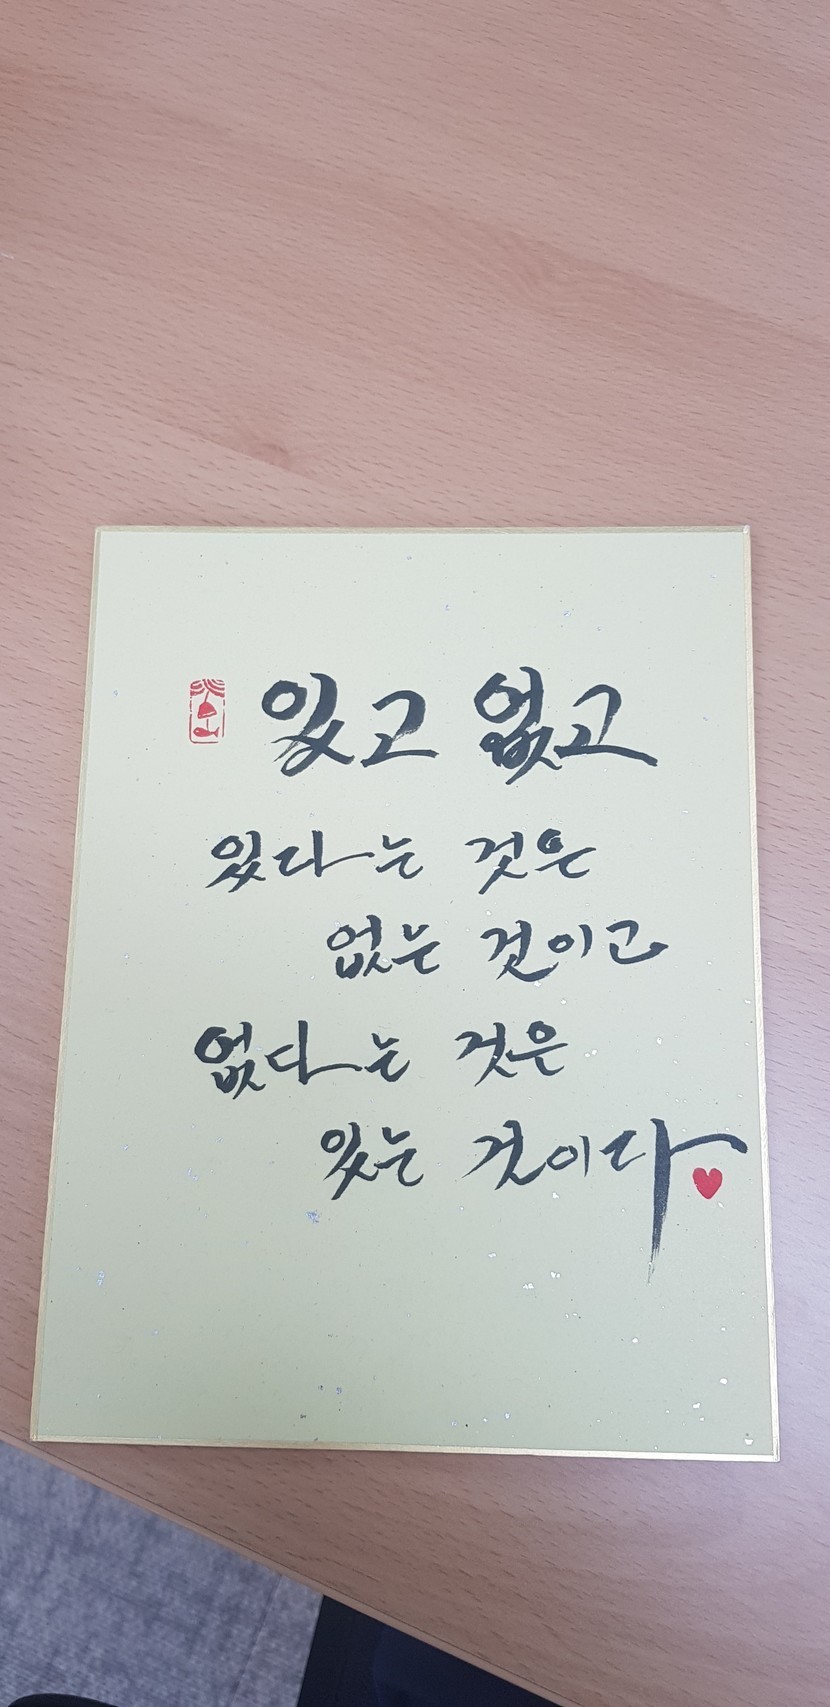 있고 없고
있다는 것은
없는 것이고
없다는 것은
있는 것이다